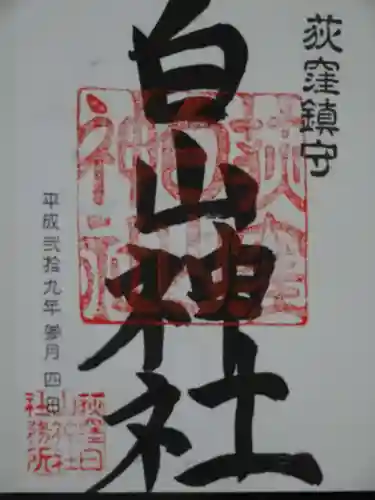 荻窪鎮守
白山神社
平成弐拾九年参月四日
荻窪白山神社
荻窪白
山神社
社務所